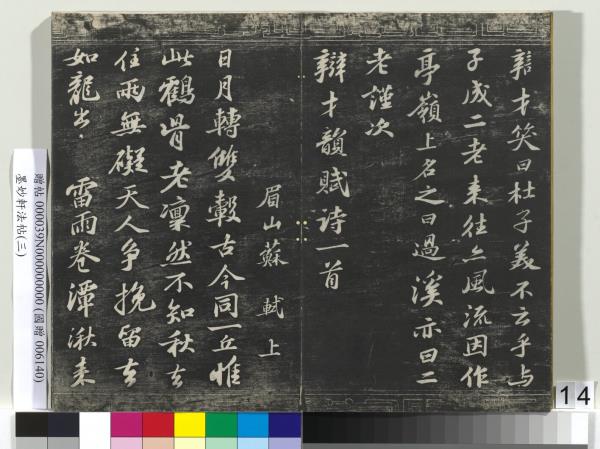 辯才笑曰杜子美不云乎与
子成二老来往亦風流因作
亭嶺上名之曰過溪亦曰二
老謹次
辯才韻賦诗一首
眉山蘇軾上
日月轉雙轂古今同一丘惟
此鶴骨老凜然不知秋去
住兩無礙天人争挽留去
如龍出雷雨卷潭湫来
贈帖 000039N000000000 (國贈 006140)
墨妙軒法帖(三)
14